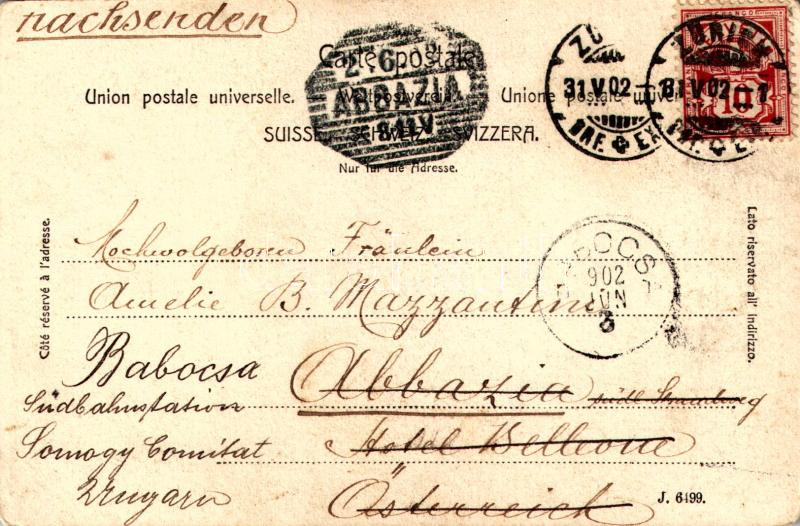 nachsenden
Carte postale.
Union postale universelle. Weltpostverein. Unione postale universale.
SUISSE. SCHWEIZ. SVIZZERA.
Nur für die Adresse.
ABBAZIA
ZÜRICH
31 V 02
BRF. EXP.
ZÜRICH
31 V 02 – 7
BRF. EXP.
10
Côté réservé à l'adresse.
Lato riservato all' indirizzo.
BABOCSA
902
JUN
3
Hochwolgeboren Fräulein
Amelie B. Mazzantini
Babocsa
Abbazia
Südbahnstation
südl.
Somogy Comitat
Hotel Bellevue
Ungarn
Österreich
J. 6499.